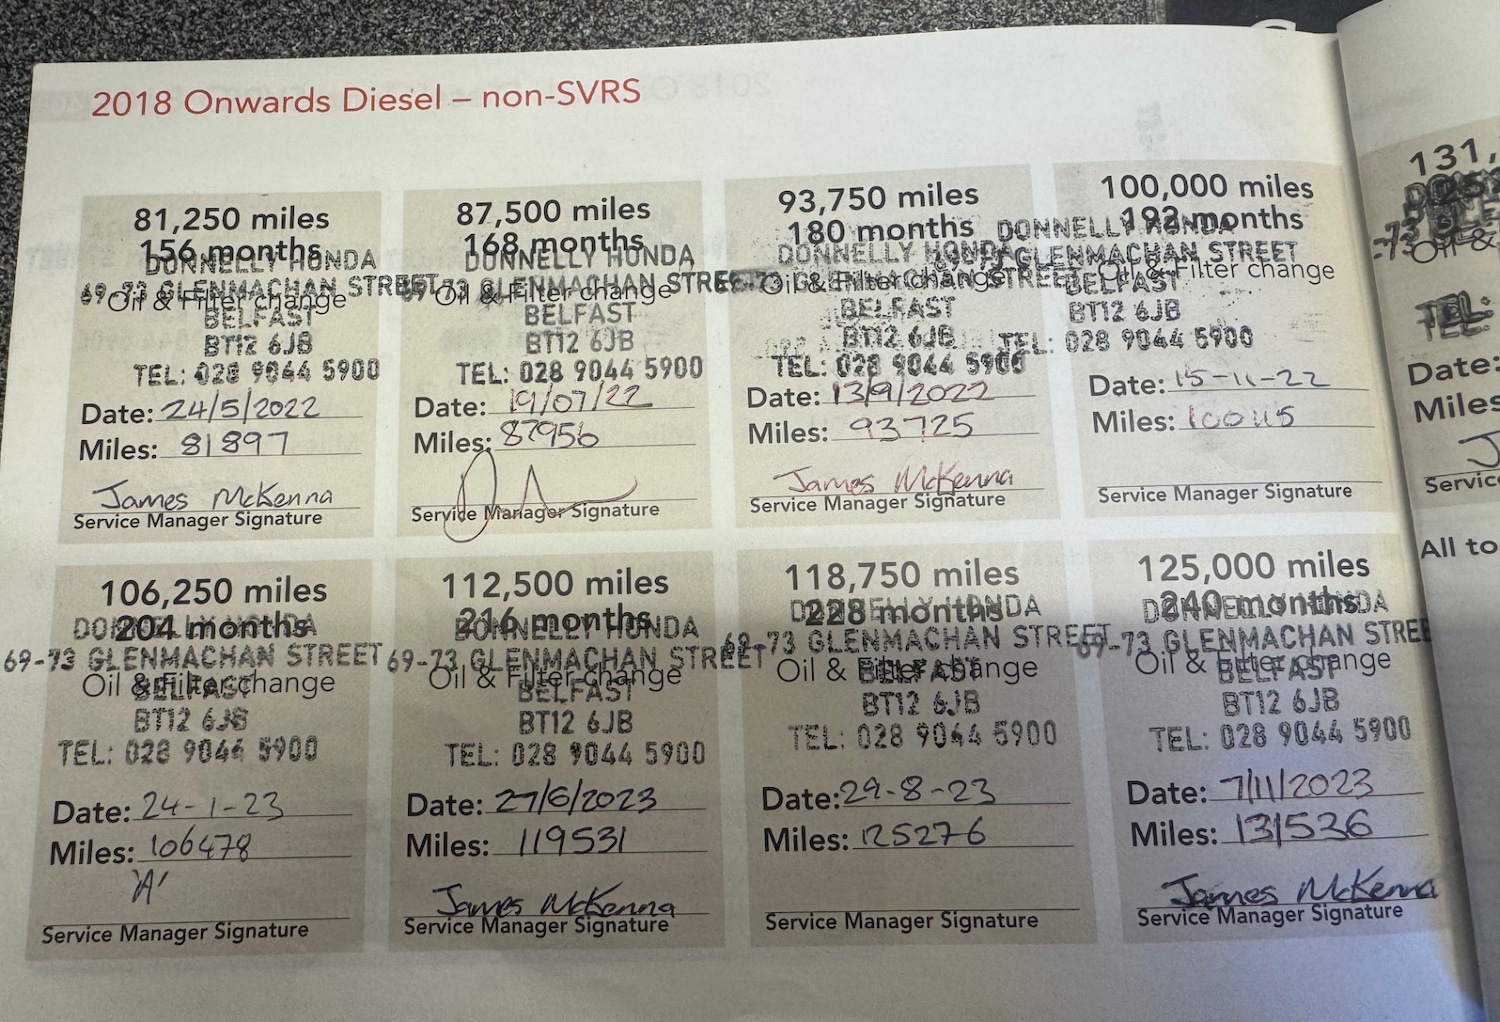 2018 Onwards Diesel – non-SVRS
81,250 miles
156 months
DONNELLY HONDA
69-73 GLENMACHAN STREET
Oil & Filter change
BELFAST
BT12 6JB
TEL: 028 9044 5900
Date: 24/5/2022
Miles: 81897
James McKenna
Service Manager Signature
87,500 miles
168 months
DONNELLY HONDA
69-73 GLENMACHAN STREET
Oil & Filter change
BELFAST
BT12 6JB
TEL: 028 9044 5900
Date: 19/07/22
Miles: 87956
Service Manager Signature
93,750 miles
180 months
DONNELLY HONDA
69-73 GLENMACHAN STREET
Oil & Filter change
BELFAST
BT12 6JB
TEL: 028 9044 5900
Date: 13/9/2022
Miles: 93725
James McKenna
Service Manager Signature
100,000 miles
192 months
DONNELLY HONDA
GLENMACHAN STREET
Oil & Filter change
BELFAST
BT12 6JB
TEL: 028 9044 5900
Date: 15-11-22
Miles: 100115
Service Manager Signature
106,250 miles
204 months
DONNELLY HONDA
69-73 GLENMACHAN STREET
Oil & Filter change
BELFAST
BT12 6JB
TEL: 028 9044 5900
Date: 24-1-23
Miles: 106478
'A'
Service Manager Signature
112,500 miles
216 months
DONNELLY HONDA
69-73 GLENMACHAN STREET
Oil & Filter change
BELFAST
BT12 6JB
TEL: 028 9044 5900
Date: 27/6/2023
Miles: 119531
James McKenna
Service Manager Signature
118,750 miles
228 months
DONNELLY HONDA
69-73 GLENMACHAN STREET
Oil & Filter change
BELFAST
BT12 6JB
TEL: 028 9044 5900
Date: 29-8-23
Miles: 125276
Service Manager Signature
125,000 miles
240 months
DONNELLY HONDA
69-73 GLENMACHAN STREE
Oil & Filter change
BELFAST
BT12 6JB
TEL: 028 9044 5900
Date: 7/11/2023
Miles: 131536
James McKenna
Service Manager Signature
131,
Oil &
TEL:
Date:
Miles
Servic
All to